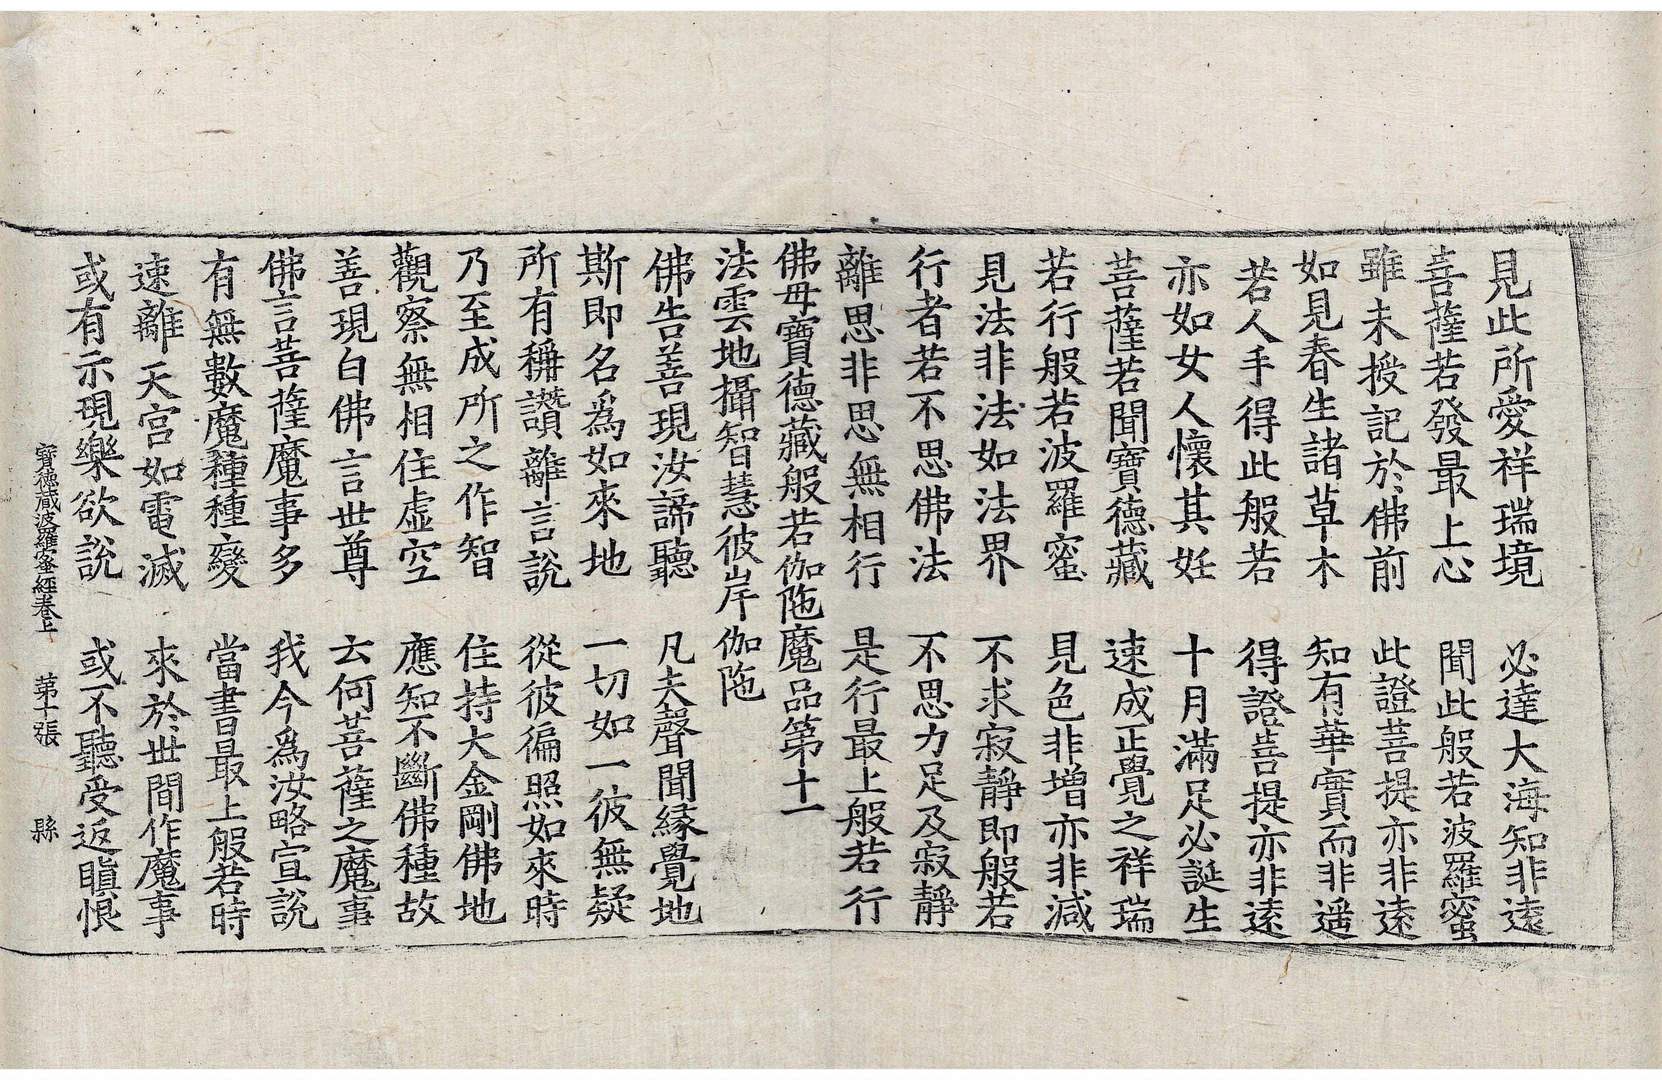 見此所愛祥瑞境　必達大海知非遠
菩薩若發最上心　聞此般若波羅蜜
雖未授記於佛前　此證菩提亦非遠
如見春生諸草木　知有華實而非遥
若人手得此般若　得證菩提亦非遠
亦如女人懷其妊　十月滿足必誕生
菩薩若聞寶德藏　速成正覺之祥瑞
若行般若波羅蜜　見色非增亦非減
見法非法如法界　不求寂靜即般若
行者若不思佛法　不思力足及寂靜
離思非思無相行　是行最上般若行
佛母寶德藏般若伽陁魔品第十一
法雲地攝智慧彼岸伽陁
佛告善現汝諦聽　凡夫聲聞緣覺地
斯即名爲如來地　一切如一彼無疑
所有稱讚離言說　從彼徧照如來時
乃至成所之作智　住持大金剛佛地
觀察無相住虛空　應知不斷佛種故
善現白佛言世尊　云何菩薩之魔事
佛言菩薩魔事多　我今爲汝略宣說
有無數魔種種變　當書最上般若時
速離天宮如電滅　來於世間作魔事
或有示現樂欲說　或不聽受返瞋恨
寶德藏波羅蜜經卷上　第十張　縣